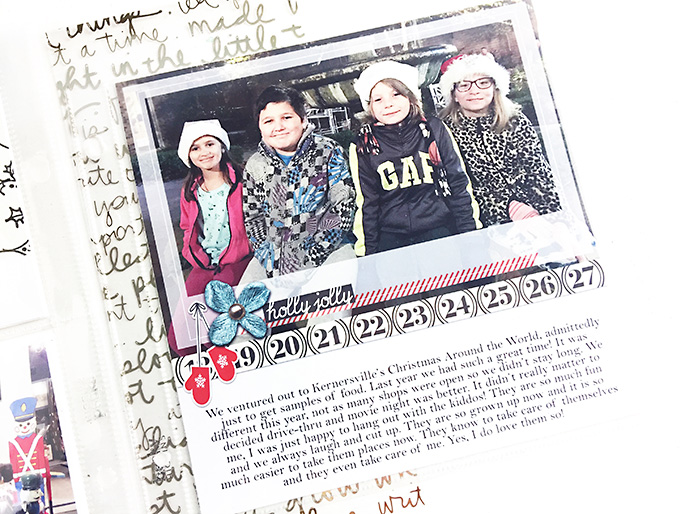 t a time. made
ght in the little t
GAP
holly jolly
19 20 21 22 23 24 25 26 27
We ventured out to Kernersville's Christmas Around the World, admittedly
just to get samples of food. Last year we had such a great time! It was
different this year, not as many shops were open so we didn't stay long. We
decided drive-thru and movie night was better. It didn't really matter to
me, I was just happy to hang out with the kiddos! They are so much fun
and we always laugh and cut up. They are so grown up now and it is so
much easier to take them places now. They know to take care of themselves
and they even take care of me. Yes, I do love them so!
grow
writ